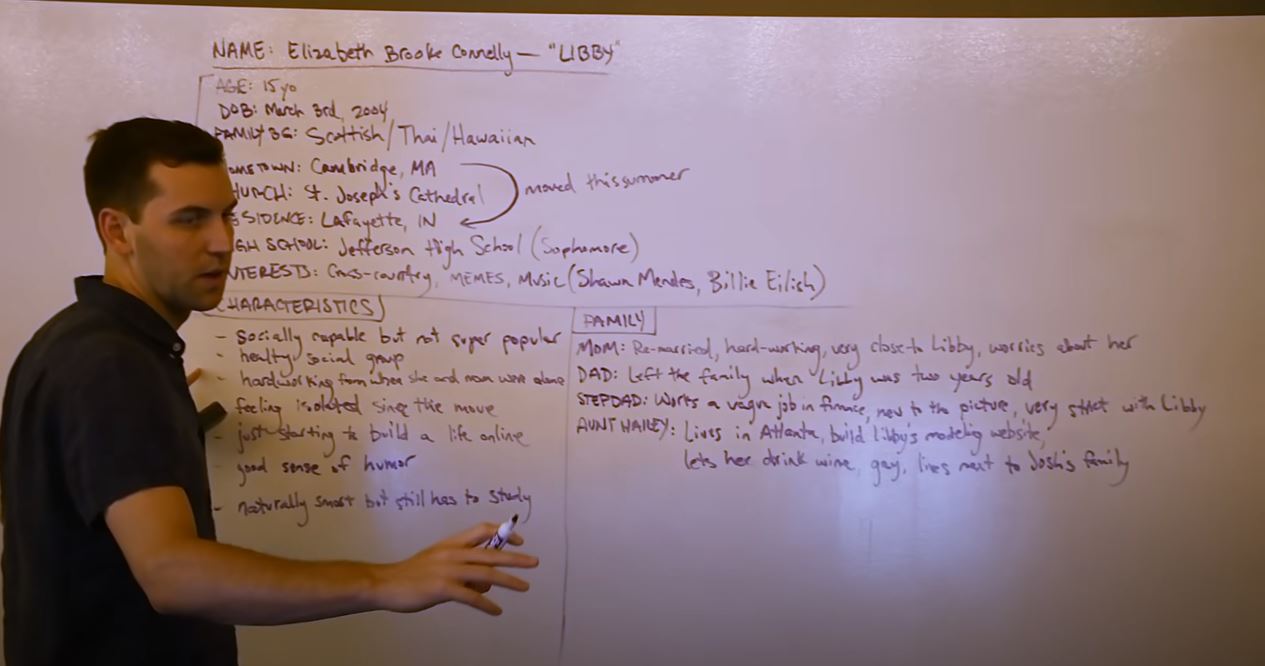 NAME: Elizabeth Brooke Connelly — "LIBBY"
AGE: 15 yo
DOB: March 3rd, 2004
FAMILY BG: Scottish/Thai/Hawaiian
OMETOWN: Cambridge, MA
HURCH: St. Joseph's Cathedral
moved this summer
ESIDENCE: Lafayette, IN
GH SCHOOL: Jefferson High School (Sophomore)
NTERESTS: Cross-country, MEMES, Music (Shawn Mendes, Billie Eilish)
CHARACTERISTICS
- socially capable but not super popular
- healthy social group
- hardworking from when she and mom were alone
- feeling isolated since the move
- just starting to build a life online
- good sense of humor
- naturally smart but still has to study
FAMILY
MOM: Re-married, hard-working, very close to Libby, worries about her
DAD: Left the family when Libby was two years old
STEPDAD: Works a vague job in finance, new to the picture, very strict with Libby
AUNT HAILEY: Lives in Atlanta, build Libby's modeling website,
lets her drink wine, gay, lives next to Josh's family